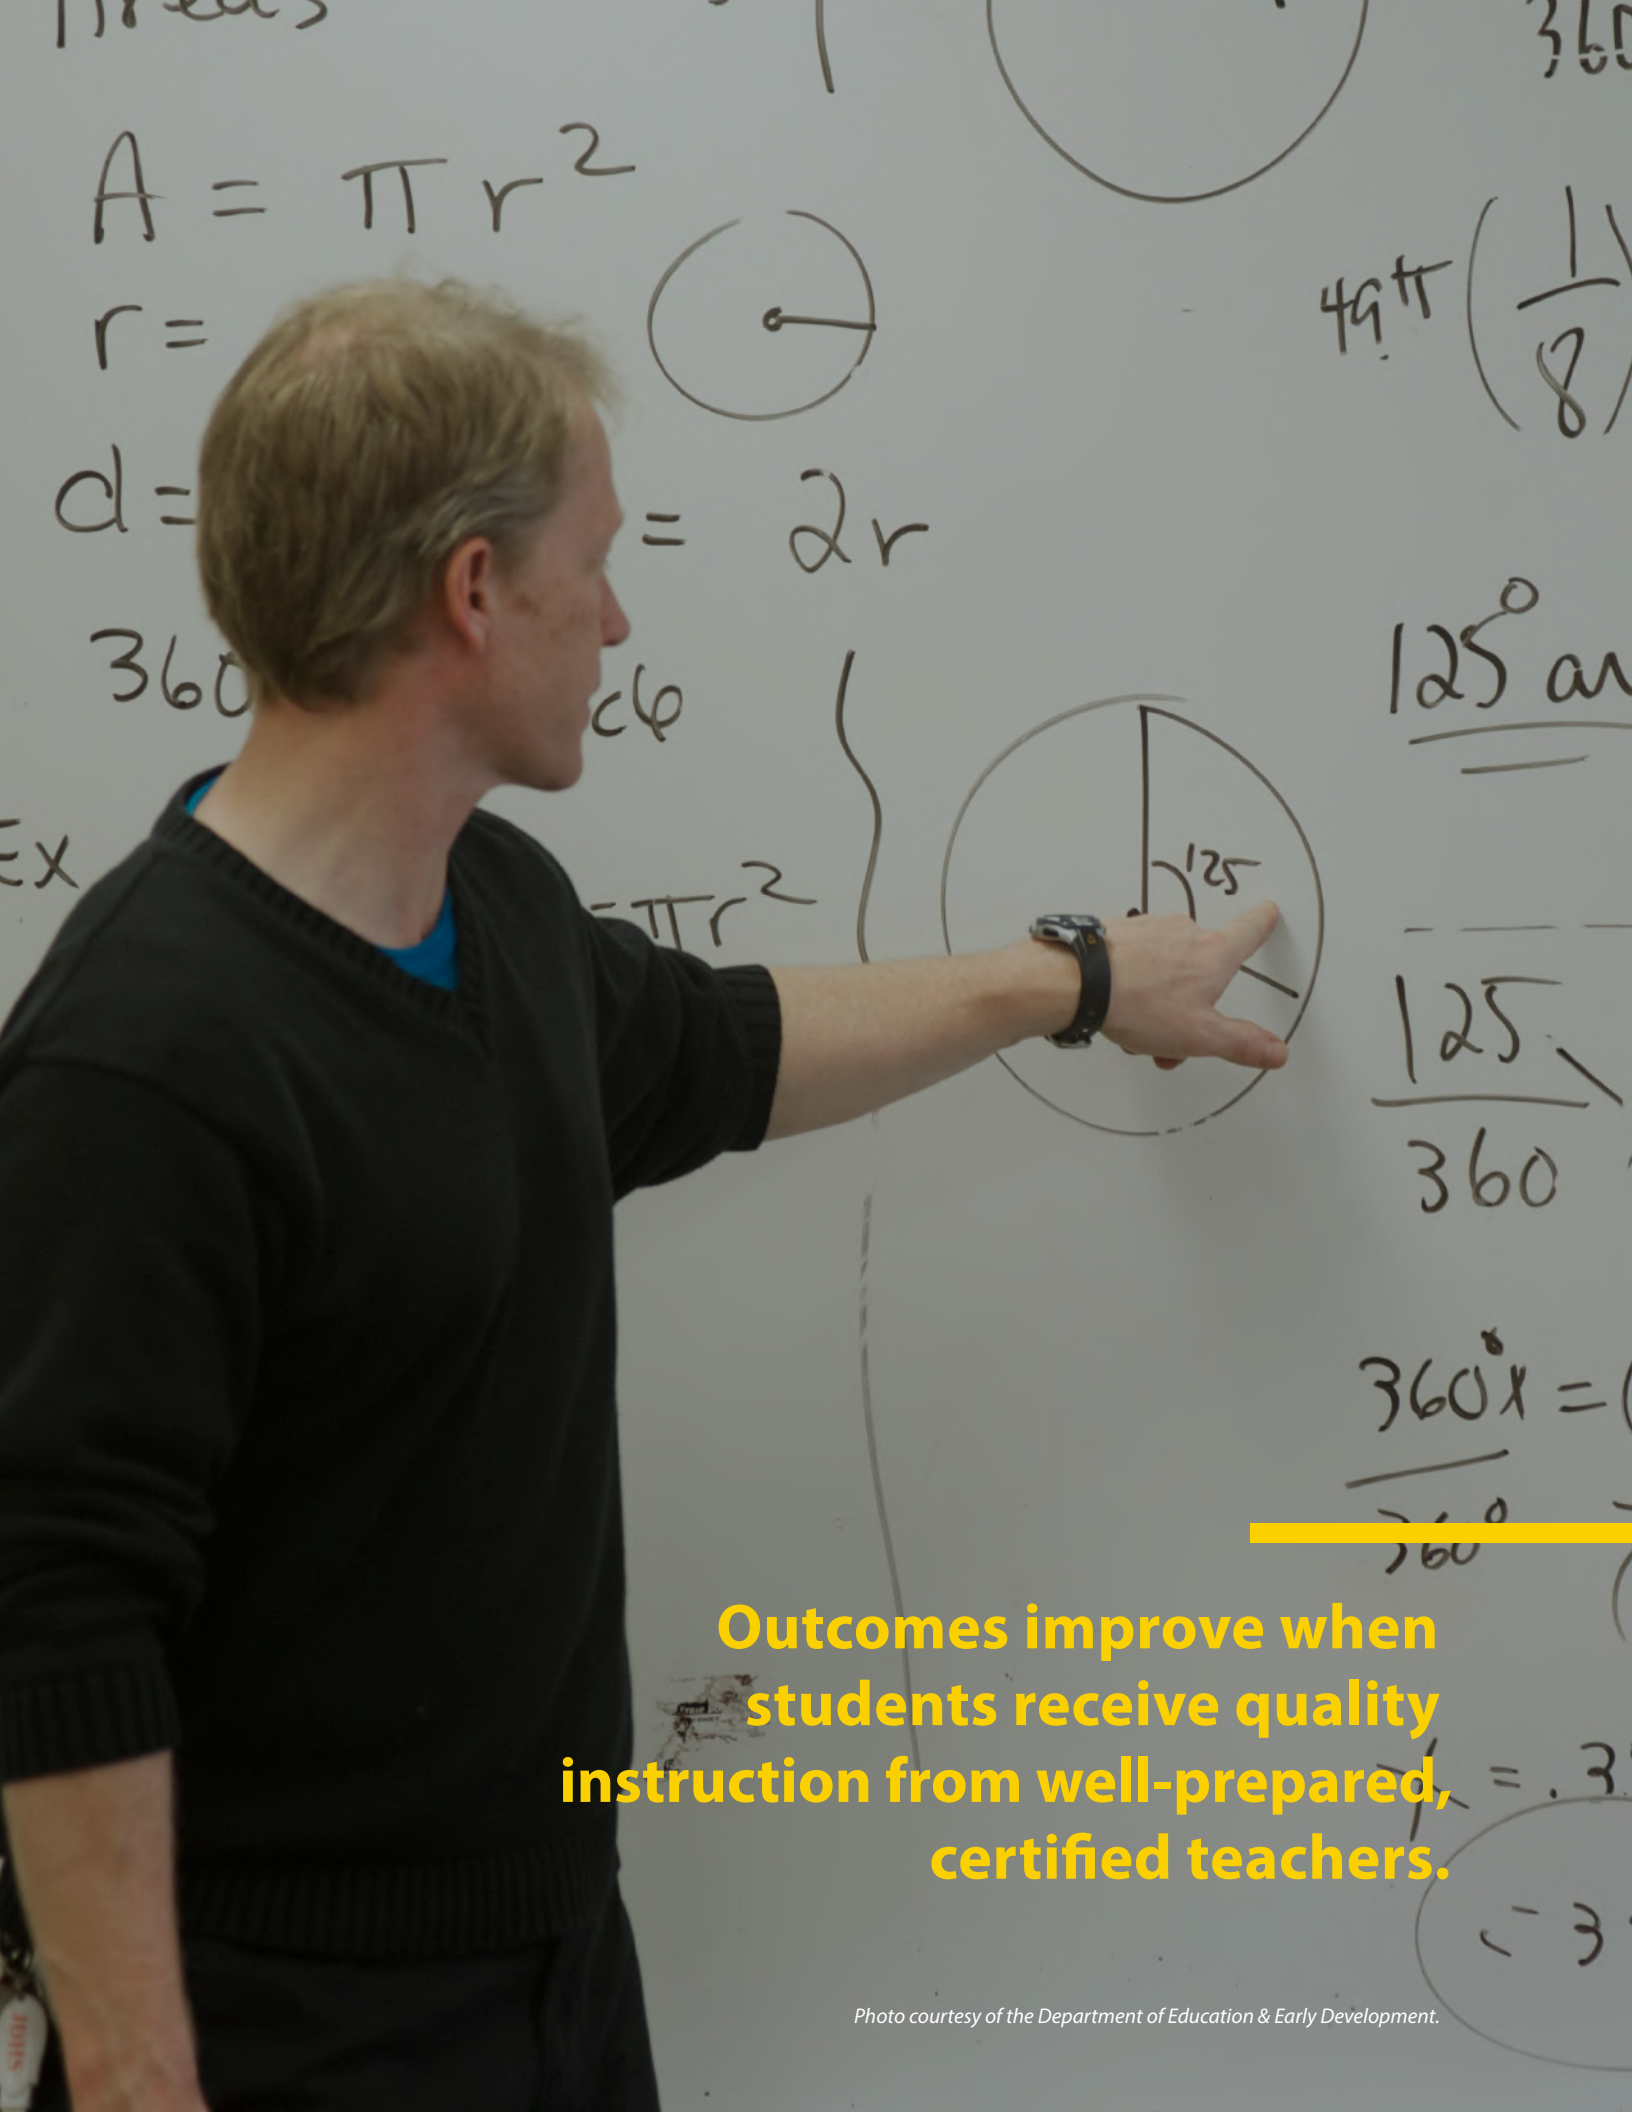 Areas
360
A = π r²
49π (1/8)
r =
d = = 2r
125° ar
360
Ex
πr²
125
125
360
360°x = (
360°
Outcomes improve when
students receive quality
instruction from well-prepared,
certified teachers.
x = .3
= 3
Photo courtesy of the Department of Education & Early Development.
JDHS